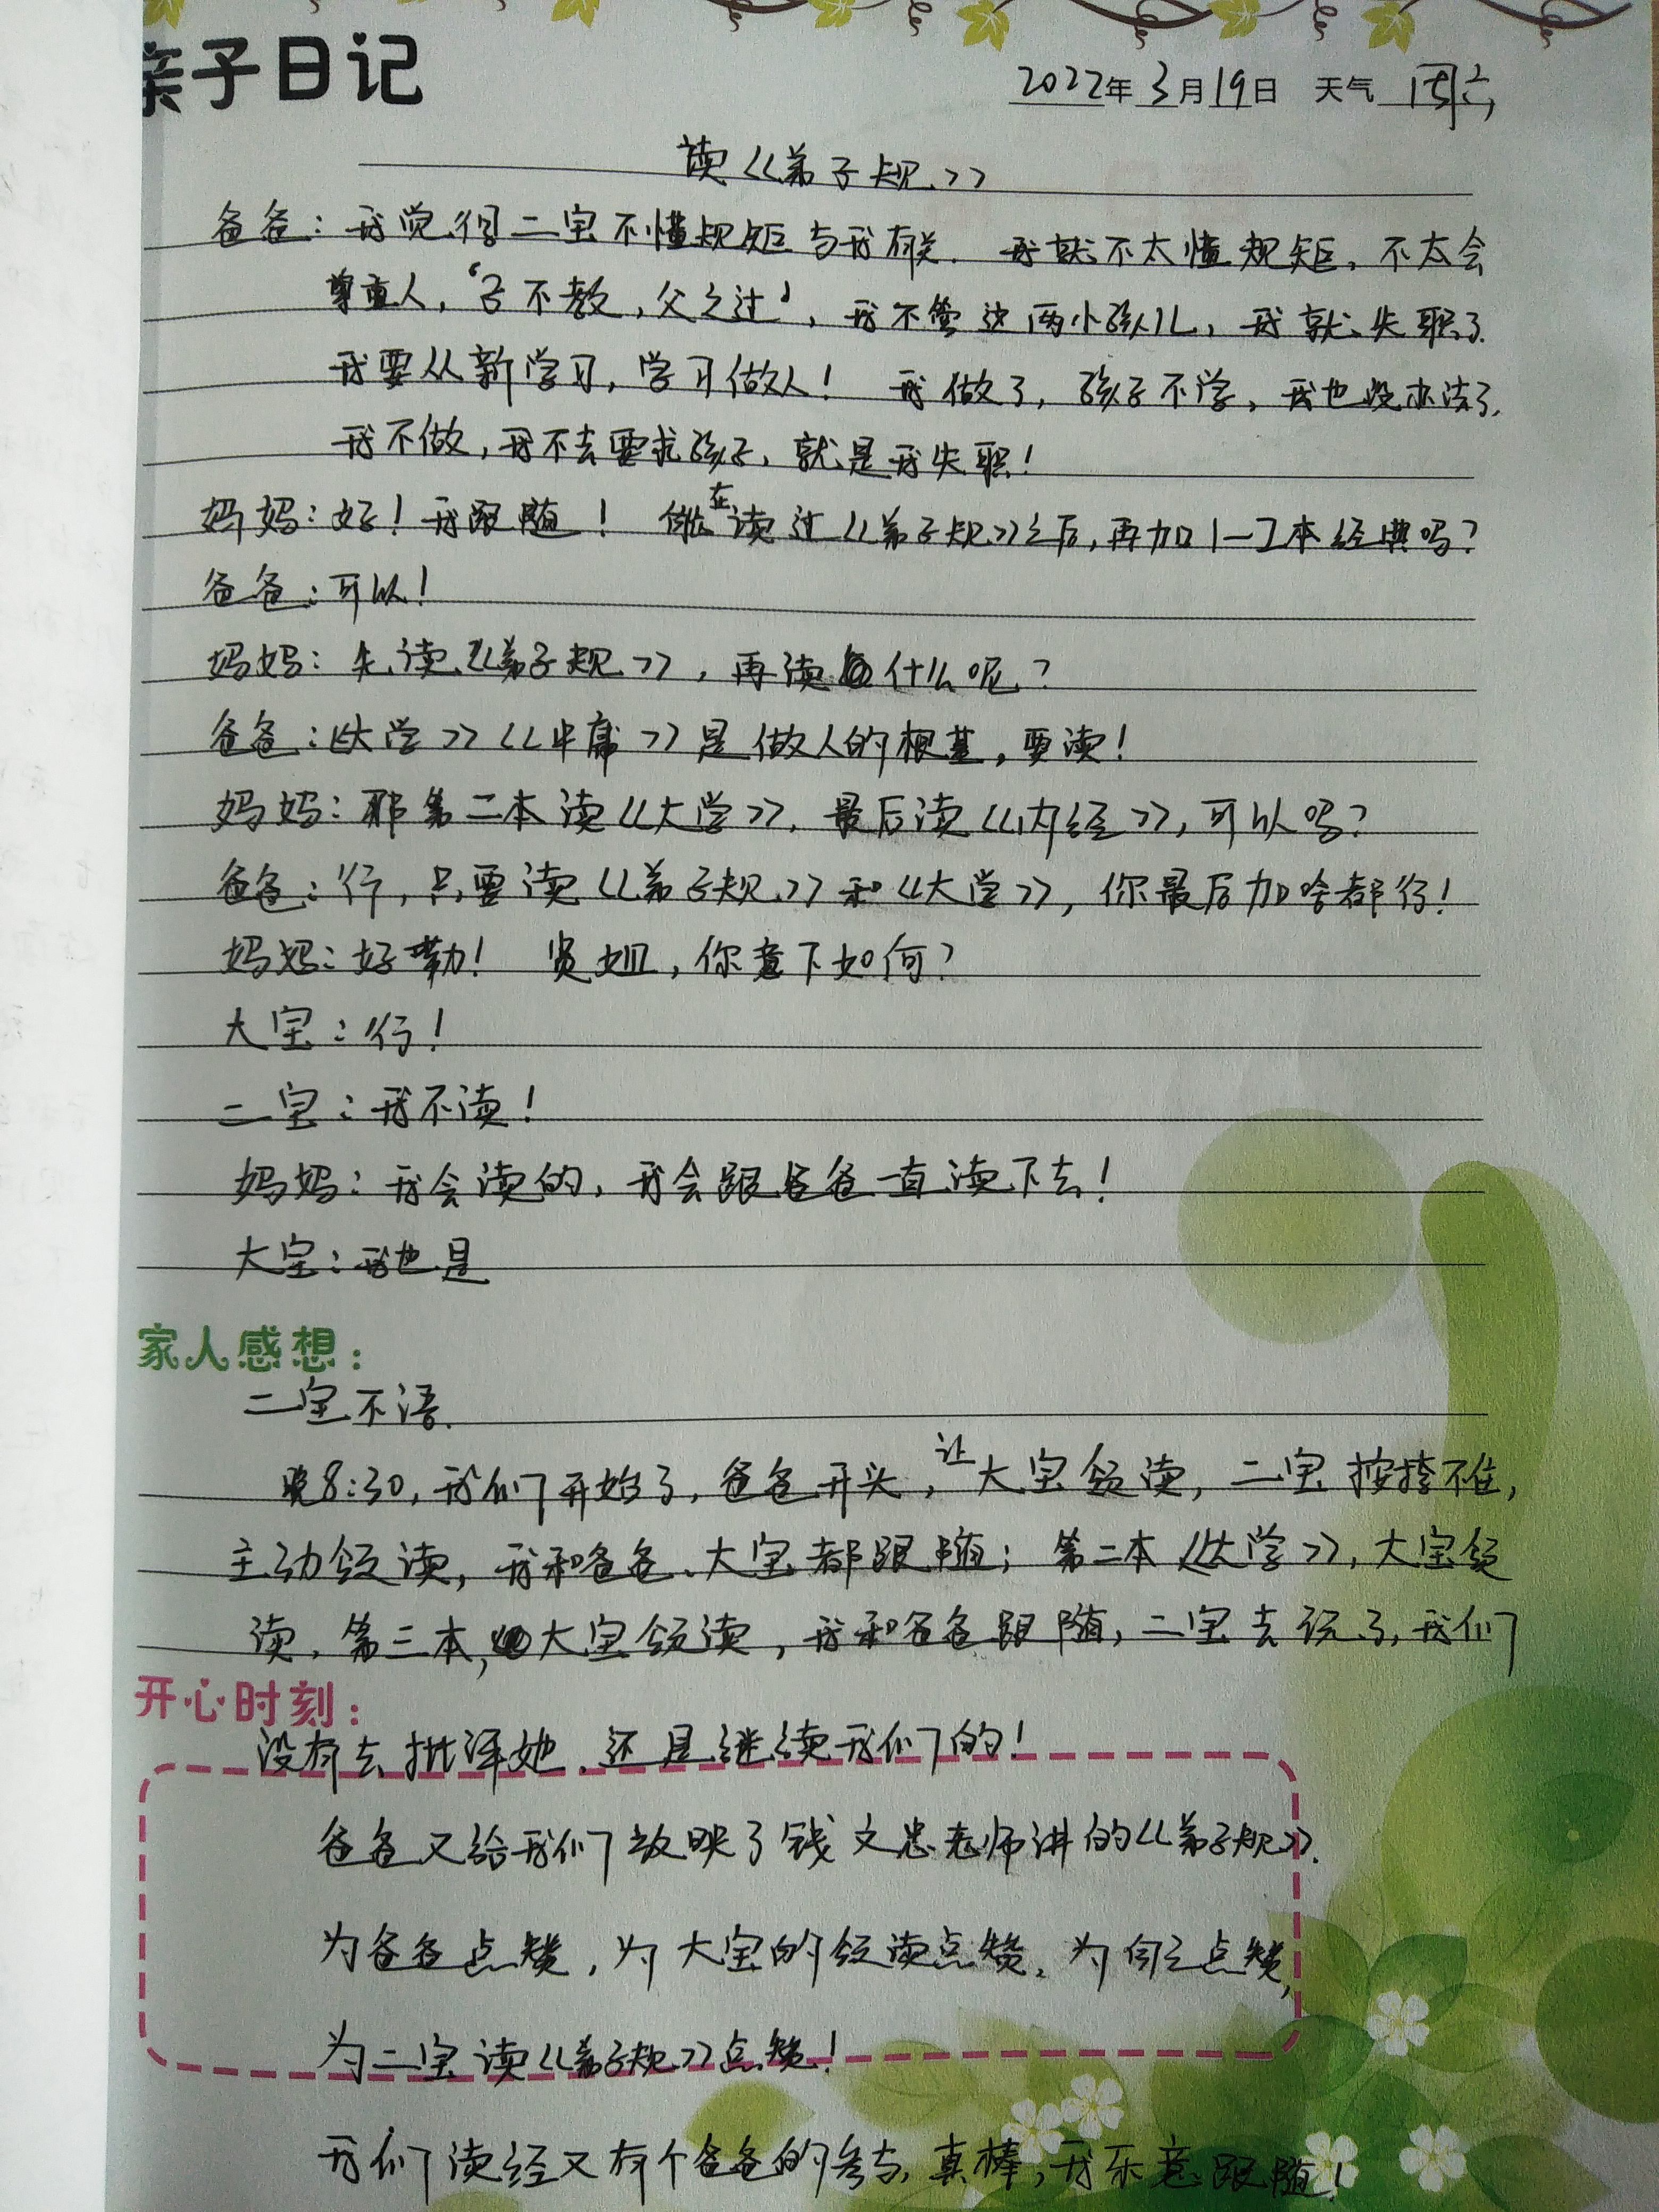 亲子日记
2022年3月19日 天气 周六
读《弟子规》
爸爸:我觉得二宝不懂规矩与我有关.我就不太懂规矩,不太会
尊重人,“子不教,父之过”,我不管这两小孩儿,我就失职了.
我要从新学习,学习做人! 我做了,孩子不学,我也没办法了,
我不做,我不去要求孩子,就是我失职!
妈妈:好!我跟随! 能在读过《弟子规》之后,再加1—2本经典吗?
爸爸:可以!
妈妈:先读《弟子规》,再读什么呢?
爸爸:《大学》《中庸》是做人的根基,要读!
妈妈:那第二本读《大学》,最后读《内经》,可以吗?
爸爸:行,只要读《弟子规》和《大学》,你最后加啥都行!
妈妈:好嘞! 贤姐,你意下如何?
大宝:行!
二宝:我不读!
妈妈:我会读的,我会跟爸爸一直读下去!
大宝:我也是
家人感想:
二宝不语.
晚8:30,我们开始了,爸爸开头,让大宝领读,二宝按捺不住,
主动领读,我和爸爸、大宝都跟随;第二本《大学》,大宝领
读,第三本,大宝领读,我和爸爸跟随,二宝去玩了,我们
开心时刻:
没有去批评她.还是继续读我们的!
爸爸又给我们放映了钱文忠老师讲的《弟子规》.
为爸爸点赞,为大宝的领读点赞,为自己点赞,
为二宝读《弟子规》点赞!
我们读经又有个爸爸的参与,真棒,我乐意跟随!